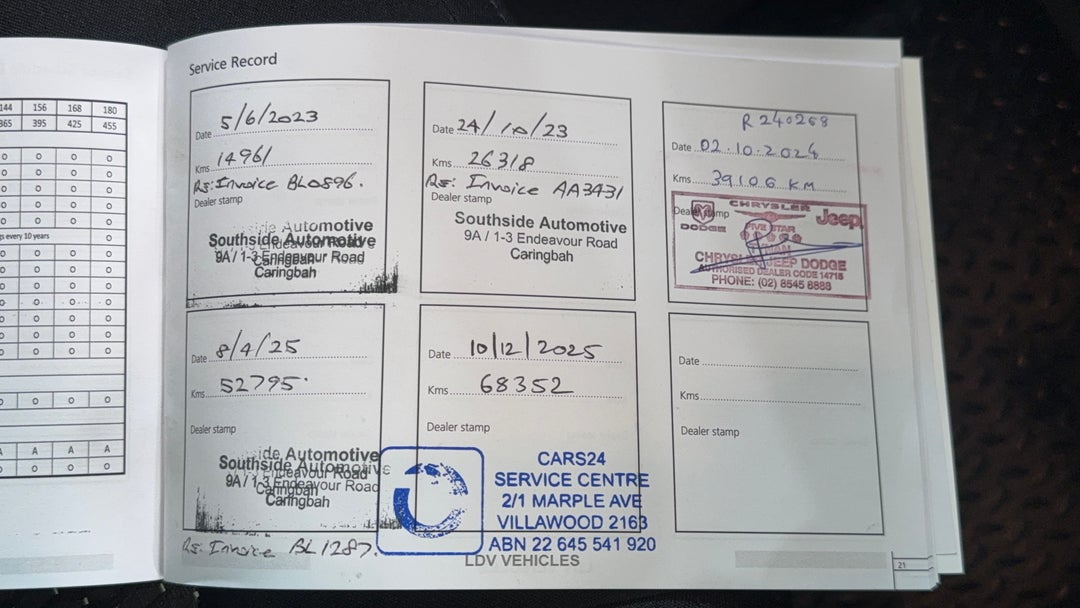 144 156 168 180
365 395 425 455
o o o o
o o o o
o o o o
o o o o
o o o o
gs every 10 years o
o o o o
o o o o
o o o o
o o o o
o o o o
o o o o
o o o o
A A A A
o o o o
Service Record
Date 5/6/2023
Kms 14961
Rs: Invoice BL0896.
Dealer stamp
Southside Automotive
9A / 1-3 Endeavour Road
Caringbah
Date 24/10/23
Kms 26318
Rs: Invoice AA3431
Dealer stamp
Southside Automotive
9A / 1-3 Endeavour Road
Caringbah
R 240268
Date 02.10.2024
Kms 39106 KM
Dealer stamp
CHRYSLER
DODGE
FIVE STAR
Jeep
CHRYSLER JEEP DODGE
AUTHORISED DEALER CODE 14715
PHONE: (02) 8545 8888
Date 8/4/25
Kms 52795
Dealer stamp
Southside Automotive
9A / 1-3 Endeavour Road
Caringbah
Rs: Invoice BL1287.
Date 10/12/2025
Kms 68352
Dealer stamp
CARS24
SERVICE CENTRE
2/1 MARPLE AVE
VILLAWOOD 2163
ABN 22 645 541 920
Date
Kms
Dealer stamp
LDV VEHICLES
21